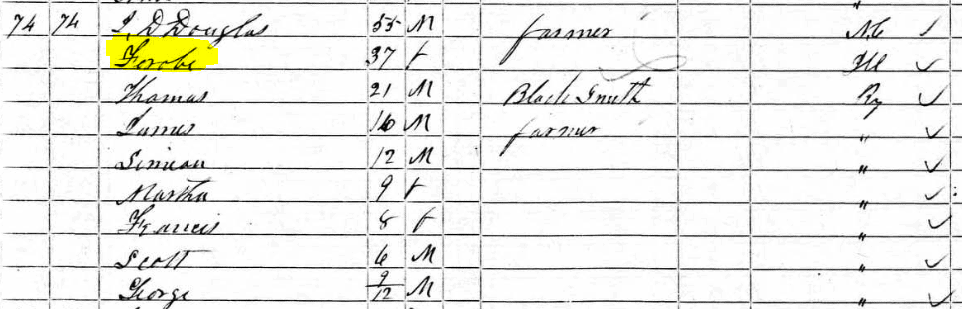 74 74 I. D Douglas 55 M farmer N.C
Ferobe 37 f Ill
Thomas 21 M Black Smith Ky
James 16 M farmer "
Simeon 12 M "
Martha 9 f "
Francis 8 f "
Scott 6 M "
George 9/12 M "